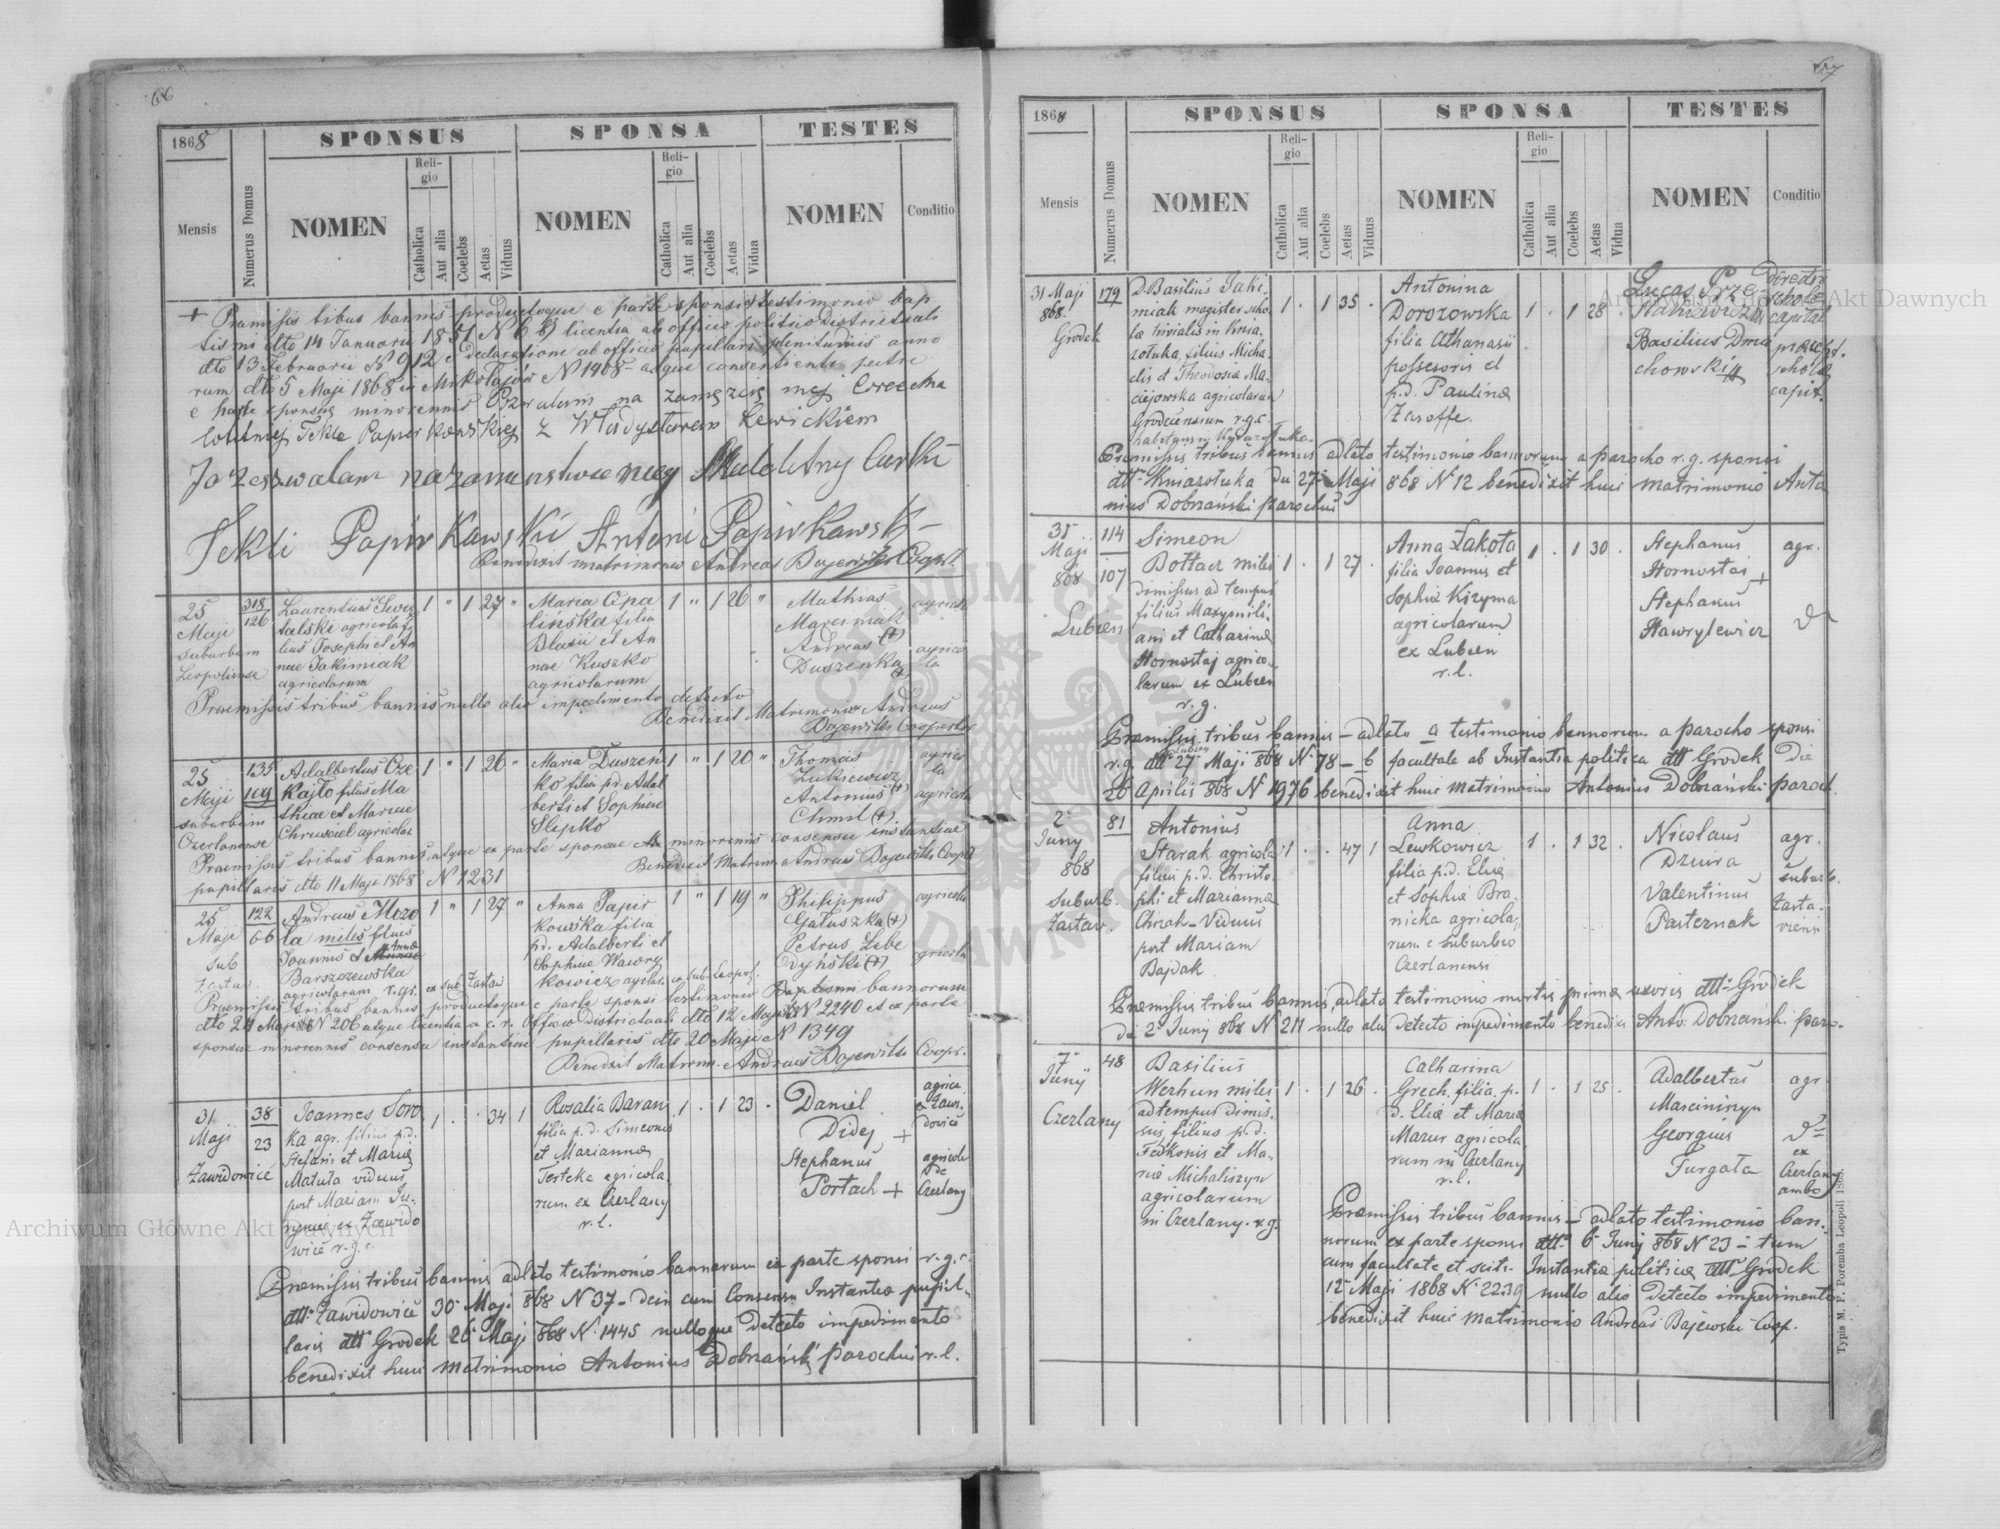 66
1868
SPONSUS
SPONSA
TESTES
Mensis
Numerus Domus
NOMEN
Religio
Catholica
Aut alia
Coelebs
Aetas
Viduus
NOMEN
Religio
Catholica
Aut alia
Coelebs
Aetas
Vidua
NOMEN
Conditio
+ Praemissis tribus bannis productoque e parte sponsi testimonio bap
tismi dto 14 Januarii 1851 N licentia ab officio politico Districtuali
dto 13 Februarii N 912 e declaratione ab officio pupillari plenitudinis anno
rum dto 5 Maji 1868 in Mikołajów N 1408 atque consentiente patre
e parte sponsae minorennis Pozwalam na zamęzcie mej Córeczki
Tekla Papirkowskiej z Władysławem Lewickiem
Ja zezwalam na zamenstwie mey Maloletny Curki
Tekli Papirkawski Antoni Papirkawsk
Benedixit matrimonio Andreas Bajewski Coopt
25
Maji
suburbium
Leopoliense
318
126
Laurentius Swie
talski agricola fi
lius Josephi et An
nae Jakimiak
agricolarum
1 " 1 27 "
Maria Opa
linska filia
Blasii et An
nae Kuszko
agricolarum
1 " 1 26 "
Mathias
Marciniak
(+)
Andreas
Duszenka
(+)
agricola
agrico
la
Praemissis tribus bannis nullo alio impedimento detecto
Benedixit Matrimonio Andreas
Bajewski Cooperator
25
Maji
suburbium
Czerlanense
135
109
Adalbertus Cze
kajło filius Ma
thiae et Mariae
Chrusciel agricolar
1 " 1 26 "
Maria Duszeń
ko filia p.d. Adal
berti et Sophiae
Slepko
1 " 1 20 "
Thomas
Zukiewicz
Antonius (+)
Chmil (+)
agrico
la
agricola
Praemissis tribus bannis, atque ex parte sponsae minorennis consensu instantiae
pupillaris dto 11 Maji 1868 N 1231
Benedixit Matrim. Andreas Bajewski Coopt
25
Maji
sub
Zastav.
122
66
Andreas Mozo
la miles filius
Joannis et Annae
Barszczewska
agricolarum r.gr. ex sub. Zastav
1 " 1 27 "
Anna Papir
kowska filia
p.d. Adalberti et
Sophiae Wawry
kowicz agrlar. ex sub Leopol.
1 " 1 19 "
Philippus
Gałuszka (+)
Petrus Lebe
dyński (+)
agricola
gricola
Praemissis tribus bannis productoque e parte sponsi testimonio bannorum
dto 24 Maji N 206 atque licentia a c.r. Officio Districtuali dto 12 Maji N 2240 et ex parte
sponsae minorennis consensu instantiae pupillaris dto 20 Maji N 1349
Benedixit Matrim. Andreas Bajewski Coopr.
31
Maji
Zawidowice
38
23
Joannes Soro
ka agr. filius p.d.
Stefani et Mariae
Matuta viduus
post Mariam
ex Zawido
wice r.g.c.
1 . . 34 1
Rosalia Baran
filia p.d. Simeonis
et Mariannae
Terteka agricola
rum ex Czerlany
r.l.
1 . 1 23 .
Daniel
Didej +
Stephanus
Portach +
agrico
ex Zawi
dowice
agricola
de
Czerlany
Praemissis tribus bannis, adlato testimonio bannorum ex parte sponsi r.g.c.
dtto Zawidowice 30 Maji 868 N 37 - dein cum Consensu Instantiae pupil-
laris dtto Grodek 26 Maji 868 N. 1445 nulloque detecto impedimento
benedixit huic matrimonio Antonius Dobrzański parochus r.l.
67
1868
SPONSUS
SPONSA
TESTES
Mensis
Numerus Domus
NOMEN
Religio
Catholica
Aut alia
Coelebs
Aetas
Viduus
NOMEN
Religio
Catholica
Aut alia
Coelebs
Aetas
Vidua
NOMEN
Conditio
31 Maji
868
Grodek
179
D. Basilius Jaki-
miak magister scho-
lae trivialis in Knia-
zołuka, filius Micha-
elis et Theodosiae Ma-
ciejowska agricolarum
Grodecensium r.g.c.
habitans in Kniazołuka.
1 . 1 35 .
Antonina
Dorozowska
filia Athanasii
possesoris et
p.d. Paulinae
Zaroffe.
1 . 1 28 .
Lucas Prze
Basilius Dmu
chowski
Director
scholae
capital
scholae
capit.
Praemissis tribus bannis, adlato testimonio bannorum a parocho r.g. sponsi
dtto Kniazołuka die 27 Maji 868 N 12 benedixit huic matrimonio Anto
nius Dobrzański parochus
31
Maji
868
Lubień
114
107
Simeon
Bottacz miles
dimissus ad tempus
filius Maxymili-
ani et Catharinae
Hornostaj agrico-
larum ex Lubien
r.g.
1 . 1 27 .
Anna Łakota
filia Joannis et
Sophiae Kizyma
agricolarum
ex Lubien
r.l.
1 . 1 30 .
Stephanus
Hornostaj +
Stephanus
Hawrylewicz
agr.
Praemissis tribus bannis - adlato a testimonio bannorum a parocho sponsi
r.g. dtto Lubien 27 Maji 868 N 78 - b facultate ab Instantia politica dtto Grodek die
26 Aprilis 868 N 1976 benedixit huic matrimonio Antonius Dobrzański paroch.
2
Juny
868
Suburb.
Zastaw.
81
Antonius
Starak agricola
filius p.d. Christo
phi et Mariannae
Chrak - Viduus
post Mariam
Bajdak
1 . . 47 1
Anna
Lewkowicz
filia p.d. Eliae
et Sophiae Bra-
nicka agricola-
rum e suburbio
Czerlanensi
1 . 1 32 .
Nicolaus
Dziura
Valentinus
Pasternak
agr.
suburb.
Zasta-
viensi
Praemissis tribus bannis, adlato testimonio mortis primae uxoris dtto Grodek
die 2 Juny 868 N 211 nullo alio detecto impedimento benedixi Anto: Dobrzański paro-
7
Juny
Czerlany
48
Basilius
Werhun miles
ad tempus dimis-
sus, filius p.d.
Fedkonis et Ma-
riae Michaliszyn
agricolarum
in Czerlany. r.g.
1 . 1 26 .
Catharina
Grech, filia p.
d. Eliae et Mariae
Mazur agricola-
rum in Czerlany
r.l.
1 . 1 25 .
Adalbertus
Marciniszyn
Georgius
Furgała
agr
ex
Czerlany
ambo
Praemissis tribus bannis - adlato testimonio ban-
norum ex parte sponsi dtto 6 Juny 868 N 23 - tum
cum facultate Instantiae politicae dtto Grodek
12 Maji 1868 N. 2239 nullo alio detecto impedimento
benedixit huic matrimonio Andreas Bajewski Coop.
Typis M. F. Poremba Leopoli 1865.
Archiwum Główne Akt Dawnych
Archiwum Główne Akt Dawnych
ARCHIWUM GŁÓWNE AKT DAWNYCH